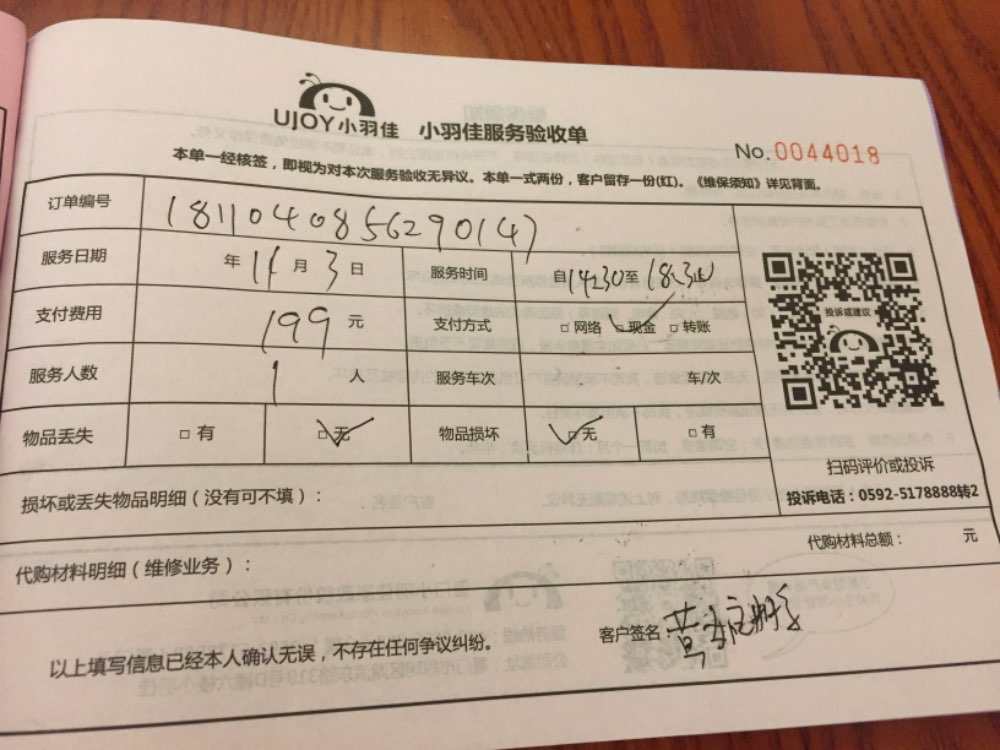 UJOY小羽佳 小羽佳服务验收单
No.0044018
本单一经核签，即视为对本次服务验收无异议。本单一式两份，客户留存一份(红)。《维保须知》详见背面。
订单编号 1811040856290147
服务日期 年 11 月 3 日 服务时间 自 14:30 至 18:30
支付费用 199 元 支付方式 □网络 □现金 □转账
服务人数 1 人 服务车次 车/次
物品丢失 □有 □无 物品损坏 □无 □有
投诉或建议
扫码评价或投诉
投诉电话：0592-5178888转2
损坏或丢失物品明细（没有可不填）：
代购材料明细（维修业务）： 代购材料总额： 元
以上填写信息已经本人确认无误，不存在任何争议纠纷。 客户签名：